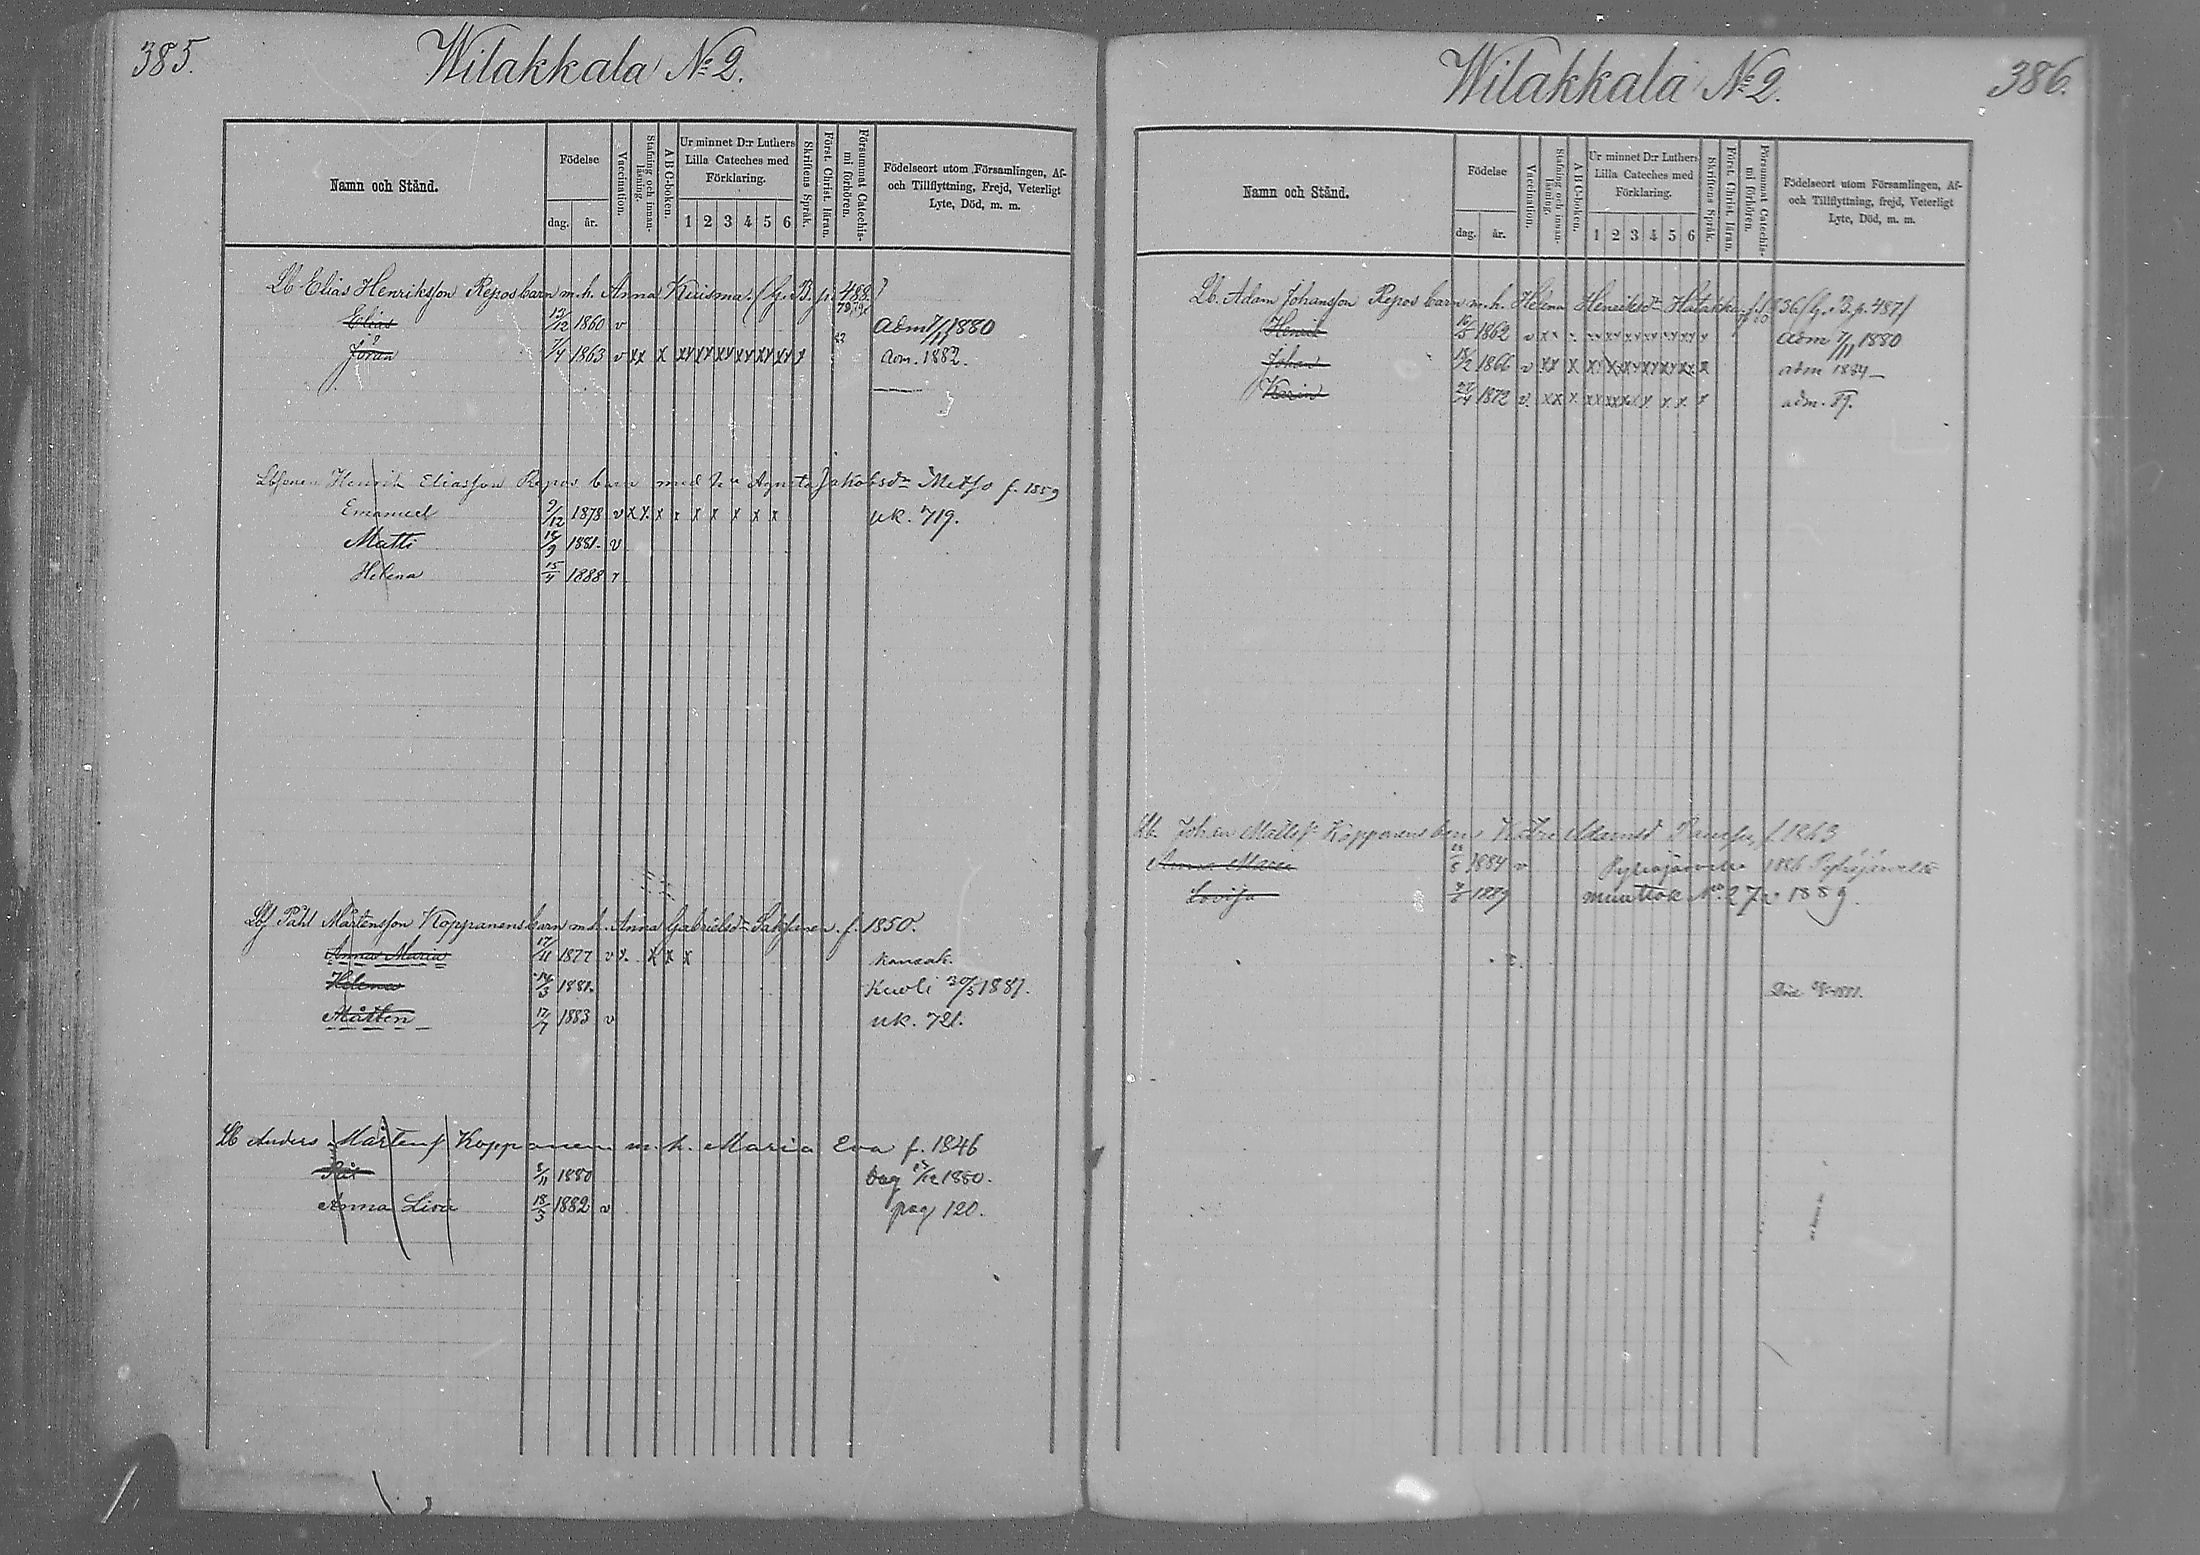 385.
Wilakkala № 2.
Namn och Stånd.
Födelse
dag. år.
Vaccination.
Stafning och innanläsning.
A B C-boken.
Ur minnet D:r Luthers Lilla Cateches med Förklaring.
1 2 3 4 5 6
Skriftens Språk.
Först. Christ. läran.
Försummat Catechismi förhören.
Födelseort utom Församlingen, Af- och Tillflyttning, Frejd, Veterligt Lyte, Död, m. m.
Lb Elias Henriksson Repos barn m. h. Anna Kuisma. (G. B. p. 488.)
Elias 13/12 1860 v Adm 7/11 1880
Jöran 7/4 1863 v xx x xx xx xx xx xx xx x Adm. 1882.
Henrik Eliasson Repos barn med Agneta Jakobsdr Metso f. 1859
Emanuel 9/12 1878 v x x x x x x x x x uk. 719.
Matti 14/9 1881. v
Helena 15/4 1888
Lbf Påhl Mårtensson Koppanens barn m. h. Anna Gabrielsdr f. 1850.
Anna Maria 17/11 1877 v x. x x x kansak.
Helena 14/3 1881. Kuoli 30/5 1881.
Mårten 17/7 1883 v uk. 721.
Lb Anders Mårtensf Kopponen m. h. Maria Eva f. 1846
1880 1880.
Anna Lisa 18/3 1882 v pag 120.
386.
Wilakkala № 2.
Namn och Stånd.
Födelse
dag. år.
Vaccination.
Stafning och innanläsning.
A B C-boken.
Ur minnet D:r Luthers Lilla Cateches med Förklaring.
1 2 3 4 5 6
Skriftens Språk.
Först. Christ. läran.
Försummat Catechismi förhören.
Födelseort utom Församlingen, Af- och Tillflyttning, frejd, Veterligt Lyte, Död, m. m.
Lb. Adam Johansson Repos barn m. h. Helena Henriksdr Hatakka 36 (G. B. p. 487)
Henrik 16/5 1862 v Adm 7/11 1880
Johan 18/2 1866 v xx x adm 1884
Karin 27/4 1872 v. xx x adm. 89.
Lb. Johan Mattsf Kopponens barn f. 1863
Anna Maria 1884 v Pyhäjärvelle 1886
Lovisa 1889 muuttok No. 27 1889